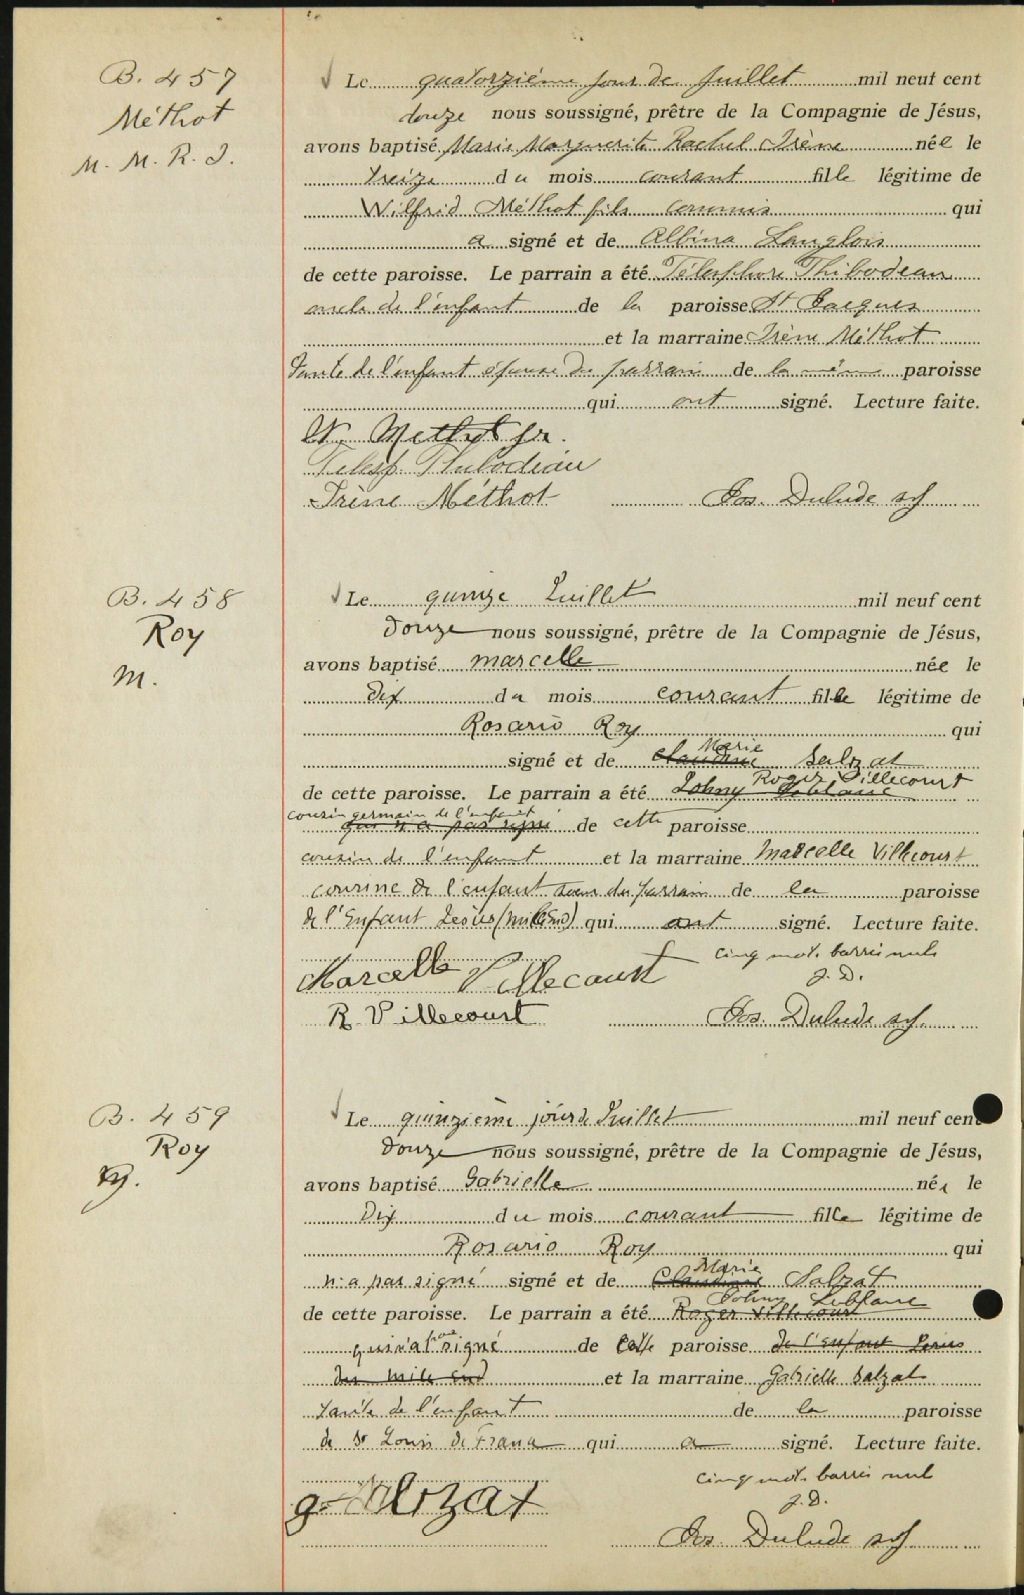 B. 457
Méthot
M. M. R. I.
Le quatorzième jour de Juillet mil neuf cent
douze nous soussigné, prêtre de la Compagnie de Jésus,
avons baptisé Marie Marguerite Rachel Irène née le
treize du mois courant fille légitime de
Wilfrid Méthot fils commis qui
a signé et de Albina Langlois
de cette paroisse. Le parrain a été Télesphore Thibodeau
oncle de l'enfant de la paroisse St Jacques
et la marraine Irène Méthot
tante de l'enfant épouse du parrain de la même paroisse
qui ont signé. Lecture faite.
W. Methot jr.
Telesp. Thibodeau
Irène Méthot Jos. Dulude sj
B. 458
Roy
M.
Le quinze Juillet mil neuf cent
douze nous soussigné, prêtre de la Compagnie de Jésus,
avons baptisé Marcelle née le
dix du mois courant fille légitime de
Rosario Roy qui
Marie
signé et de Claudine Salzat
Roger Villecourt
de cette paroisse. Le parrain a été Johny Leblanc
cousin germain de l'enfant
qui n'a pas signé de cette paroisse
cousin de l'enfant et la marraine Marcelle Villecourt
cousine de l'enfant soeur du parrain de la paroisse
de l'Enfant Jesus (mile End) qui ont signé. Lecture faite.
cinq mots barrés nuls
J. D.
Marcelle Villecourt
R. Villecourt Jos. Dulude sj.
B. 459
Roy
G.
Le quinzième jour de Juillet mil neuf cent
douze nous soussigné, prêtre de la Compagnie de Jésus,
avons baptisé Gabrielle née le
Dix du mois courant fille légitime de
Rosario Roy qui
Marie
n'a pas signé signé et de Claudine Salzat
Johny Leblanc
de cette paroisse. Le parrain a été Roger Villecourt
qui n'a pas signé de cette paroisse de l'enfant Jesus
du mile End et la marraine Gabrielle Salzat
tante de l'enfant de la paroisse
de St Louis de France qui a signé. Lecture faite.
cinq mots barrés nuls
J. D.
g. Salzat
Jos. Dulude sj